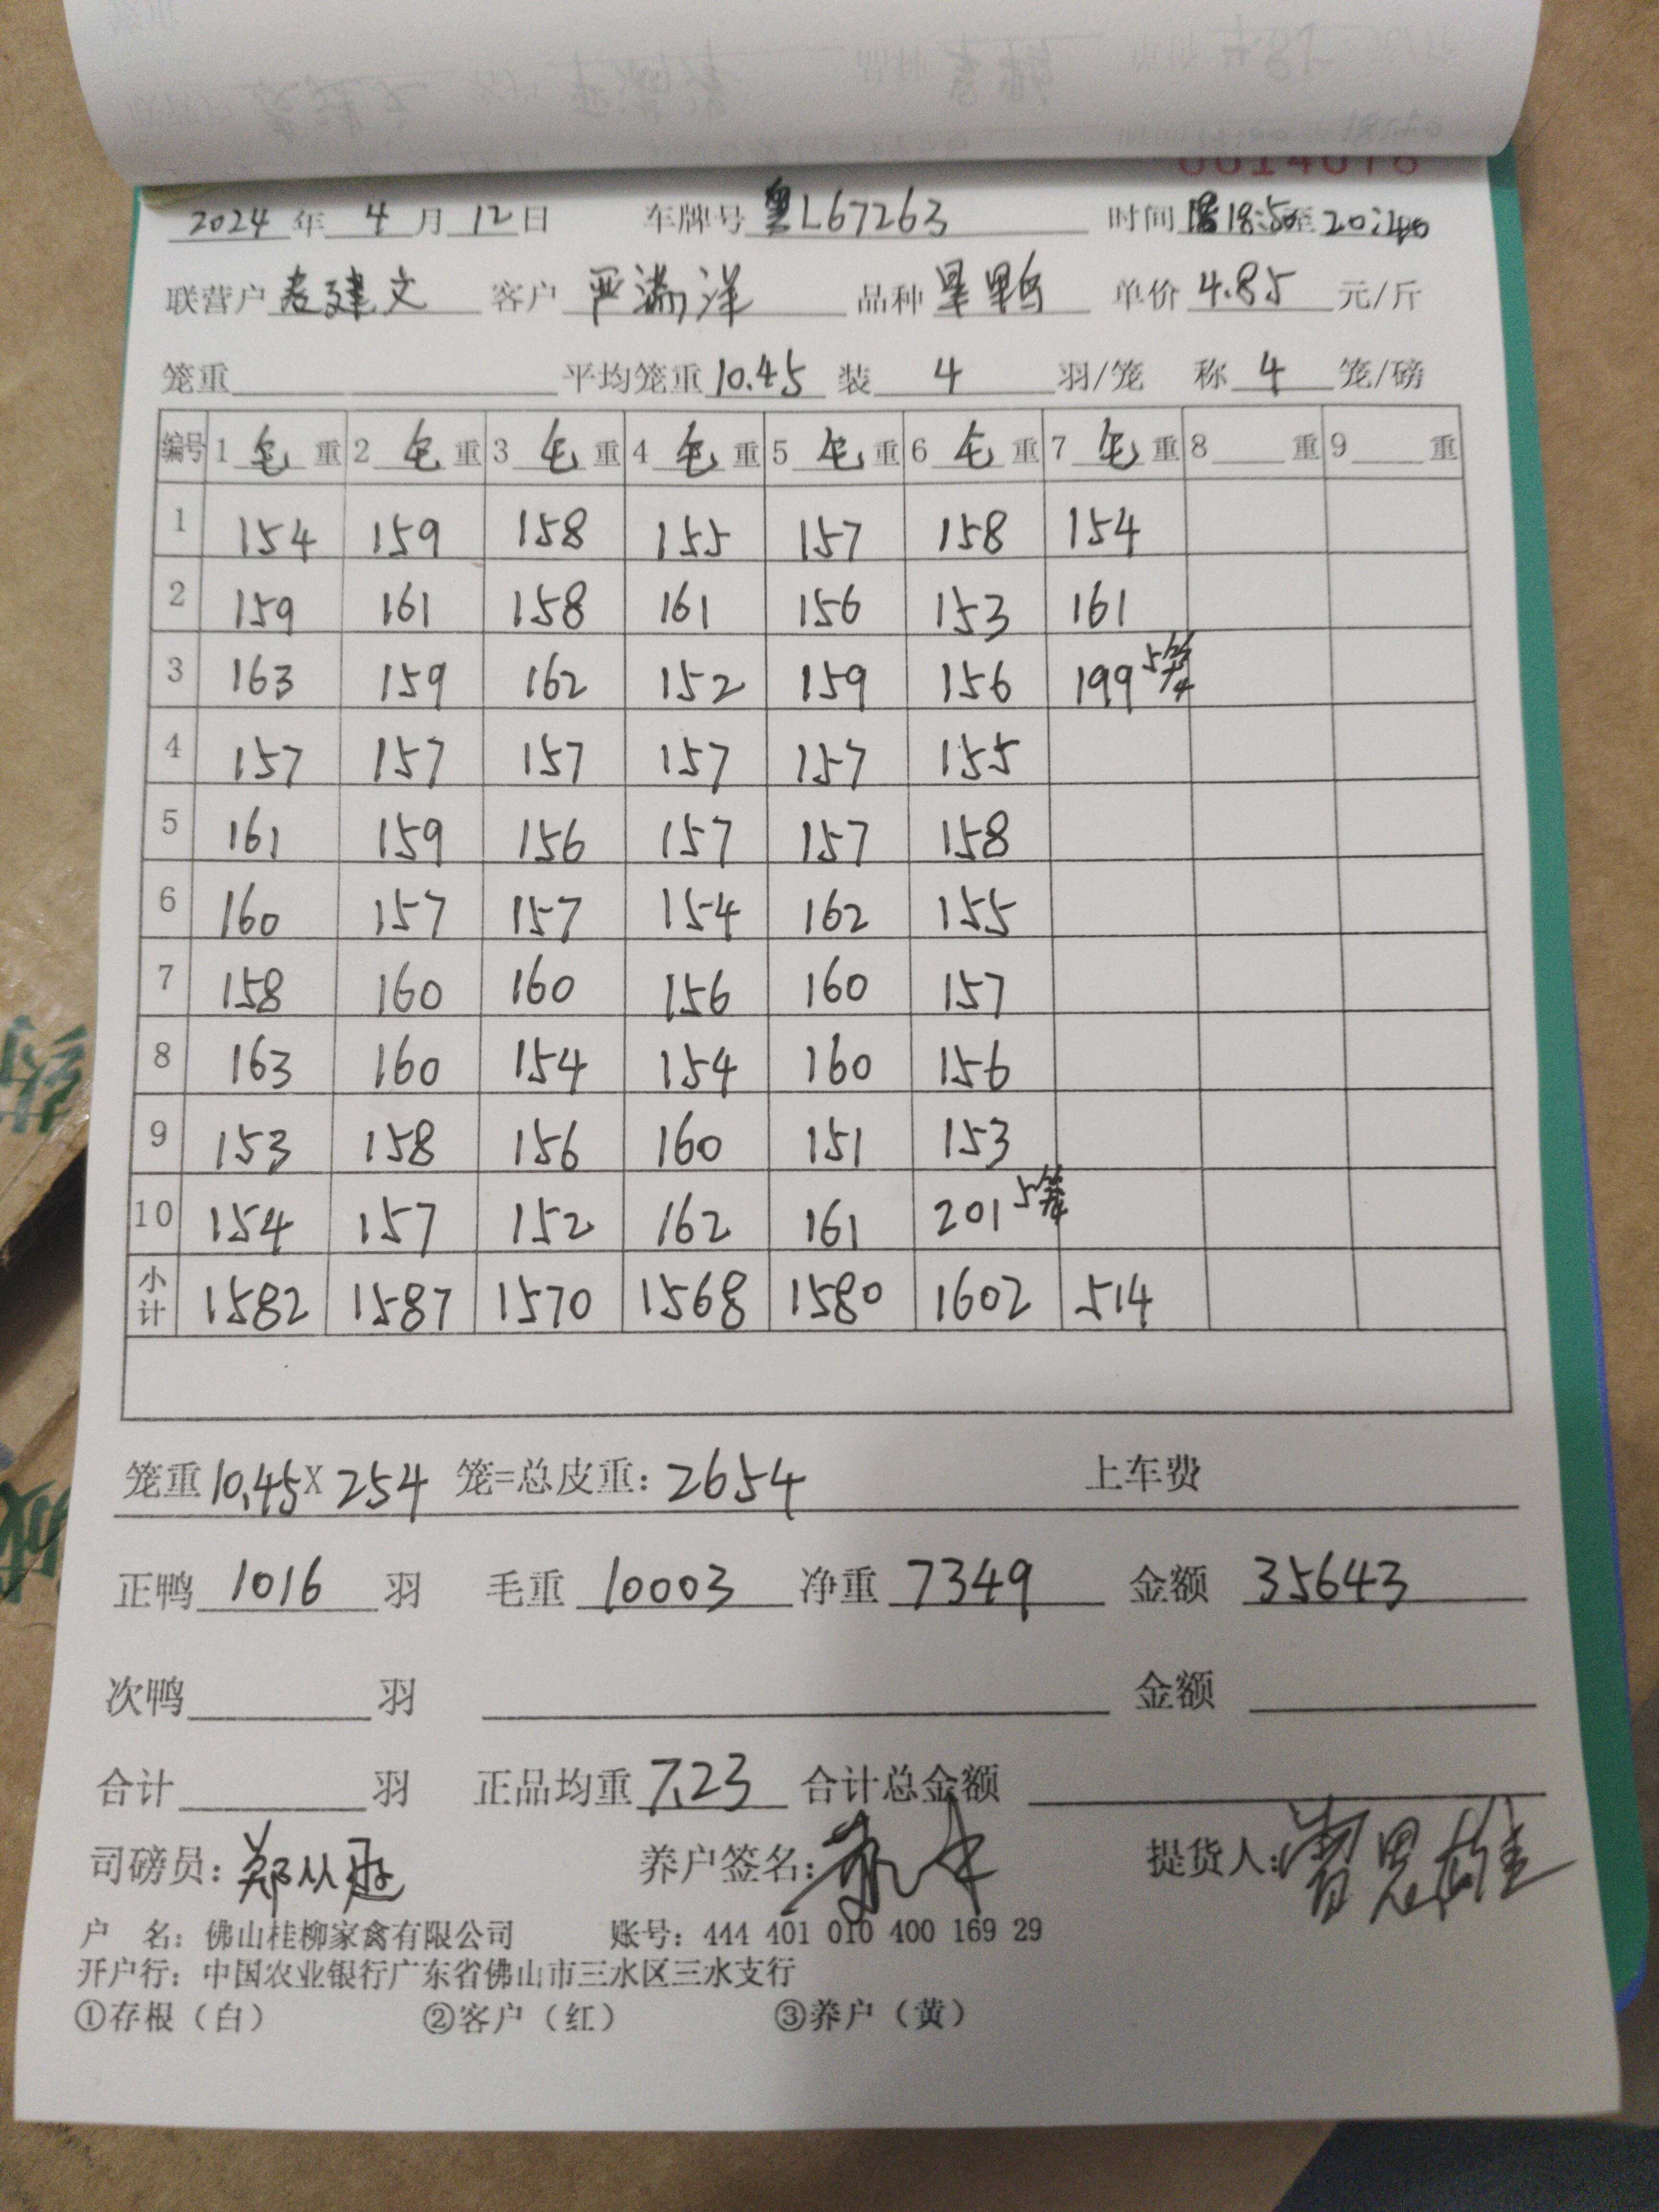 0014078
2024年 4月12日 车牌号 粤L67263 时间 18:50至20:40
联营户 建文 客户 严满洋 品种 单价 4.85 元/斤
笼重 平均笼重 10.45 装 4 羽/笼 称 4 笼/磅
编号 1 毛 重 2 毛 重 3 毛 重 4 毛 重 5 毛 重 6 毛 重 7 毛 重 8 重 9 重
1 154 159 158 155 157 158 154
2 159 161 158 161 156 153 161
3 163 159 162 152 159 156 199 5笼
4 157 157 157 157 157 155
5 161 159 156 157 157 158
6 160 157 157 154 162 155
7 158 160 160 156 160 157
8 163 160 154 154 160 156
9 153 158 156 160 151 153
10 154 157 152 162 161 201 5笼
小计 1582 1587 1570 1568 1580 1602 514
笼重 10.45 X 254 笼=总皮重: 2654 上车费
正鸭 1016 羽 毛重 10003 净重 7349 金额 35643
次鸭 羽 金额
合计 羽 正品均重 7.23 合计总金额
司磅员: 郑从 养户签名: 提货人: 曾思雄
户 名: 佛山桂柳家禽有限公司 账号: 444 401 010 400 169 29
开户行: 中国农业银行广东省佛山市三水区三水支行
①存根(白) ②客户(红) ③养户(黄)